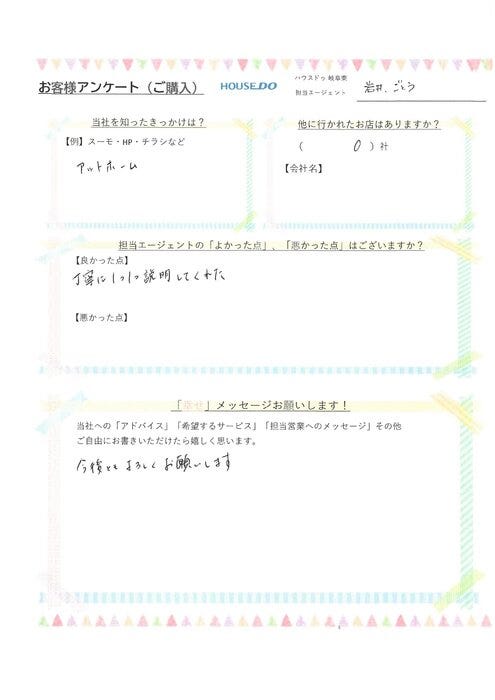 お客様アンケート（ご購入）
HOUSEDO
ハウスドゥ 岐阜東
担当エージェント
岩井、ごとう
当社を知ったきっかけは？
【例】スーモ・HP・チラシなど
アットホーム
他に行かれたお店はありますか？
（ 0 ）社
【会社名】
担当エージェントの「よかった点」、「悪かった点」はございますか？
【良かった点】
丁寧に1つ1つ説明してくれた
【悪かった点】
「幸せ」メッセージお願いします！
当社への「アドバイス」「希望するサービス」「担当営業へのメッセージ」その他
ご自由にお書きいただけたら嬉しく思います。
今後ともよろしくお願いします